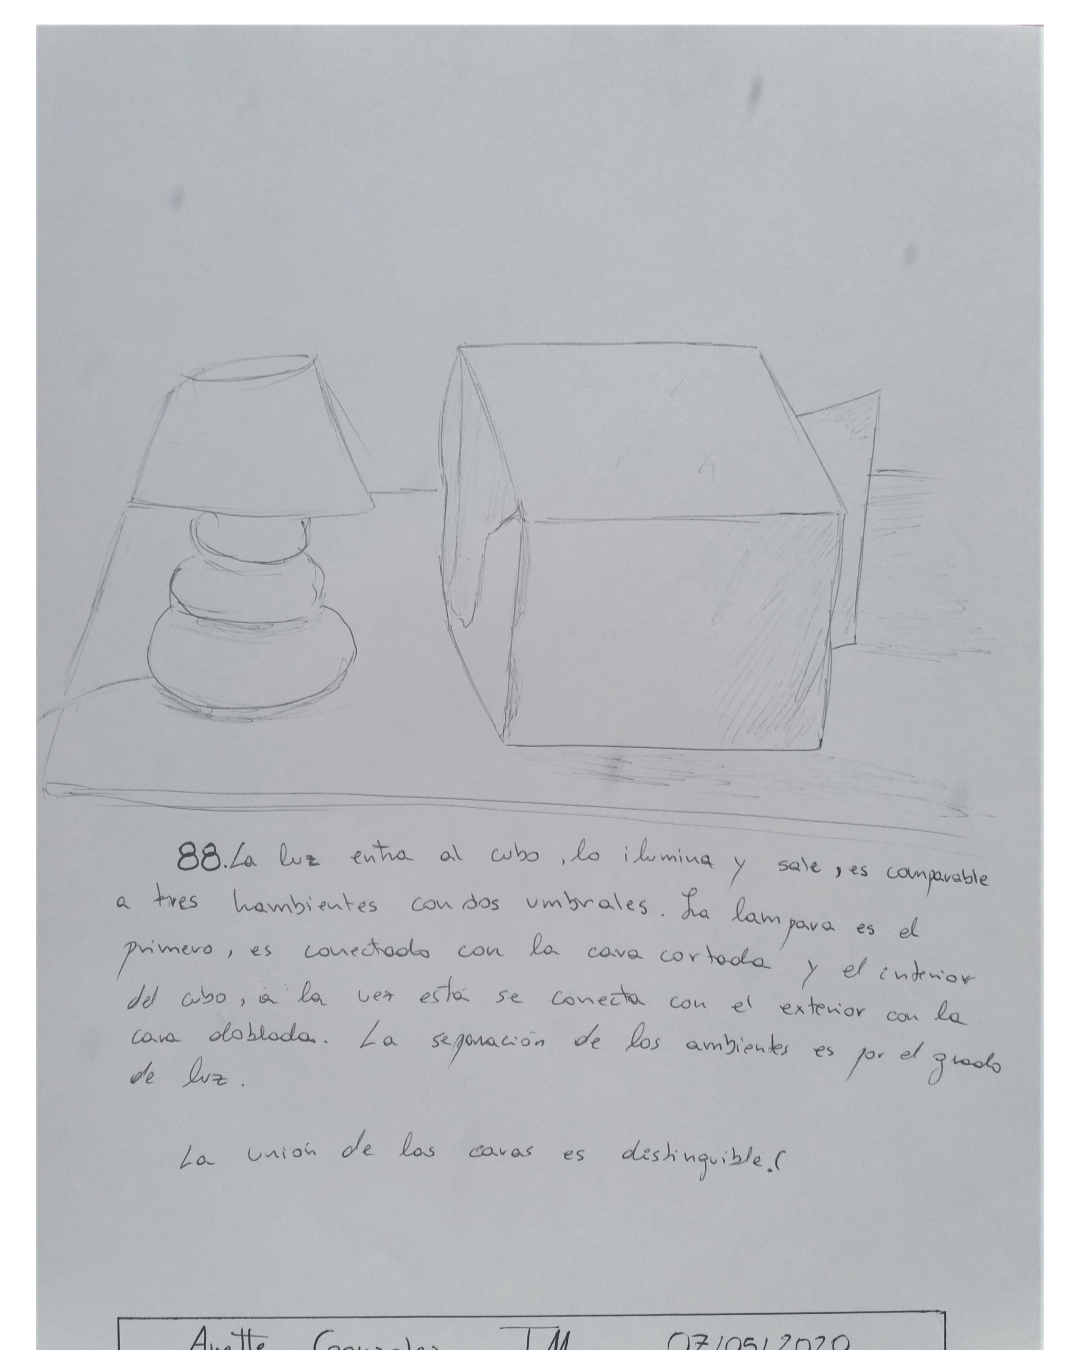 88. La luz entra al cubo, lo ilumina y sale, es comparable
a tres hambientes con dos umbrales. La lampara es el
primero, es conectado con la cara cortada y el interior
del cubo, a la vez está se conecta con el exterior con la
cara doblada. La separación de los ambientes es por el grado
de luz.
La unión de las caras es distinguible.(
Anette Gonzalez TM 07/05/2020